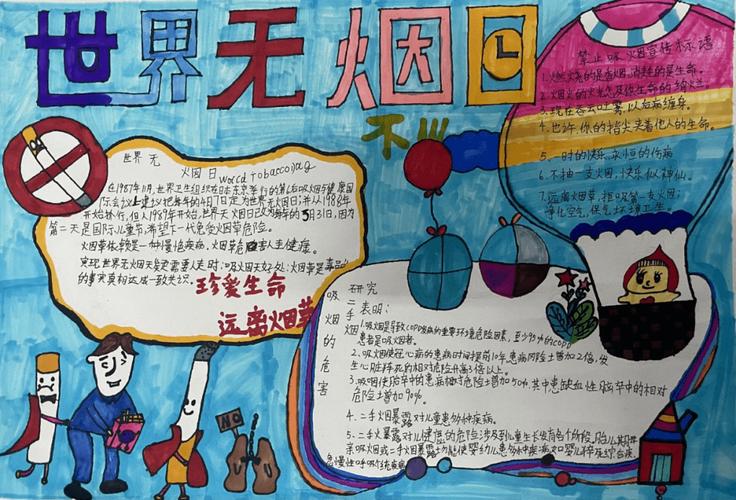 世界无烟日
禁止吸烟宣传标语
1.燃烧的是香烟,消耗的是生命。
2.烟头的火光是你生命的
3.现在吞云吐雾,以后病缠身。
4.也许你的指尖夹着他人的生命。
5.一时的快乐,永恒的伤痛
6.不抽一支烟,快乐似神仙。
7.远离烟草,拒吸第一支火因;
净化空气,保气环境卫生。
不
世界无
火因日 world tobacco day
在1987年11月,世界卫生组织在日本东京举行的第6届吸烟与健康国
际会议上建议把每年的4月7日定为世界无烟日,并从1988年
开始执行,但从1989年开始,世界无烟日改为每年的5月31日,因为
第二天是国际儿童节,希望下一代免受火因草危险。
火因草依赖是一种慢性疾病,烟草危害人生健康。
实现世界无火因天
的事实真相达成一致共识。
珍爱生命
远离烟草
NO
吸烟的危害
研究
二手火因
表明:
1.吸烟是导致copd疾病的重要环境危险因素,至少95%的copd
患者是吸烟者。
2.吸烟使冠心病的患病时间提前10年,患病风险上增加2倍,发
生心脏猝死的相对危险升高3倍以上。
3.吸烟使脑卒中的患病相对危险上增加50%,其中患缺血性脑卒中的相对
危险上增加90%。
4.二手火因暴露对儿童患幼肿疾病。
5.二手火暴露对儿健康的危险涉及到儿童生长发育各个阶段,胎儿期母
亲吸烟或二手火因暴露
急慢性呼吸系统疾病